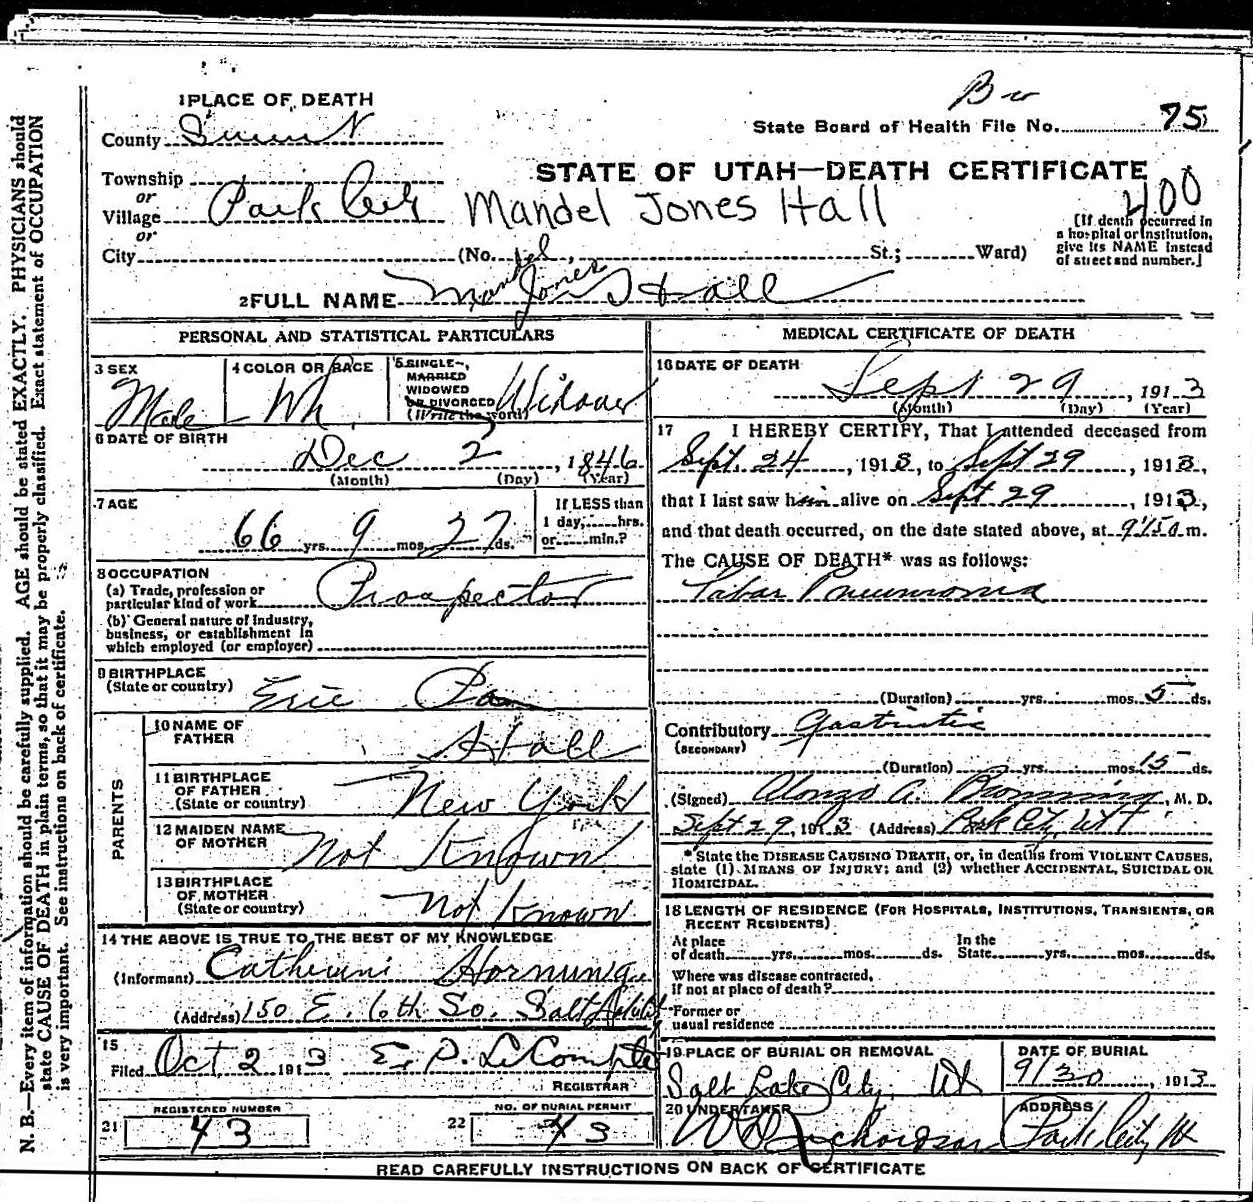 1 PLACE OF DEATH
County Summit
State Board of Health File No. 75
STATE OF UTAH—DEATH CERTIFICATE
400
Township
or
Village Park City
Mandel Jones Hall
or
City (No. , St.; Ward)
[If death occurred in
a hospital or institution,
give its NAME instead
of street and number.]
2 FULL NAME Mandel Jones Hall
PERSONAL AND STATISTICAL PARTICULARS
3 SEX
Male
4 COLOR OR RACE
Wh.
5 SINGLE,
MARRIED
WIDOWED
OR DIVORCED
(Write the word)
Widower
6 DATE OF BIRTH
Dec 2, 1846
(Month) (Day) (Year)
7 AGE
66 yrs. 9 mos. 27 ds.
If LESS than
1 day, hrs.
or min.?
8 OCCUPATION
(a) Trade, profession or
particular kind of work Prospector
(b) General nature of industry,
business, or establishment in
which employed (or employer)
9 BIRTHPLACE
(State or country) Erie Pa
PARENTS
10 NAME OF
FATHER Hall
11 BIRTHPLACE
OF FATHER
(State or country) New York
12 MAIDEN NAME
OF MOTHER Not Known
13 BIRTHPLACE
OF MOTHER
(State or country) Not Known
14 THE ABOVE IS TRUE TO THE BEST OF MY KNOWLEDGE
(Informant)
(Address) 150 E. 6th So. Salt
15
Filed Oct 2 1913 E. P. LeCompte
REGISTRAR
21 REGISTERED NUMBER
43
22 NO. OF BURIAL PERMIT
43
MEDICAL CERTIFICATE OF DEATH
16 DATE OF DEATH
Sept 29, 1913
(Month) (Day) (Year)
17 I HEREBY CERTIFY, That I attended deceased from
Sept. 24, 1913, to Sept 29, 1913,
that I last saw him alive on Sept 29, 1913,
and that death occurred, on the date stated above, at m.
The CAUSE OF DEATH* was as follows:
Pneumonia
(Duration) yrs. mos. 5 ds.
Contributory
(SECONDARY)
(Duration) yrs. mos. 15 ds.
(Signed) Alonzo A. , M. D.
Sept 29, 1913 (Address) Park City, Ut
* State the DISEASE CAUSING DEATH, or, in deaths from VIOLENT CAUSES,
state (1) MEANS OF INJURY; and (2) whether ACCIDENTAL, SUICIDAL OR
HOMICIDAL.
18 LENGTH OF RESIDENCE (FOR HOSPITALS, INSTITUTIONS, TRANSIENTS, OR
RECENT RESIDENTS)
At place
of death yrs. mos. ds.
In the
State yrs. mos. ds.
Where was disease contracted,
if not at place of death?
Former or
usual residence
19 PLACE OF BURIAL OR REMOVAL
Salt Lake City, Ut
DATE OF BURIAL
9/30, 1913
20 UNDERTAKER
ADDRESS
Park City Ut
READ CAREFULLY INSTRUCTIONS ON BACK OF CERTIFICATE
N. B.—Every item of information should be carefully supplied. AGE should be stated EXACTLY. PHYSICIANS should
state CAUSE OF DEATH in plain terms, so that it may be properly classified. Exact statement of OCCUPATION
is very important. See instructions on back of certificate.